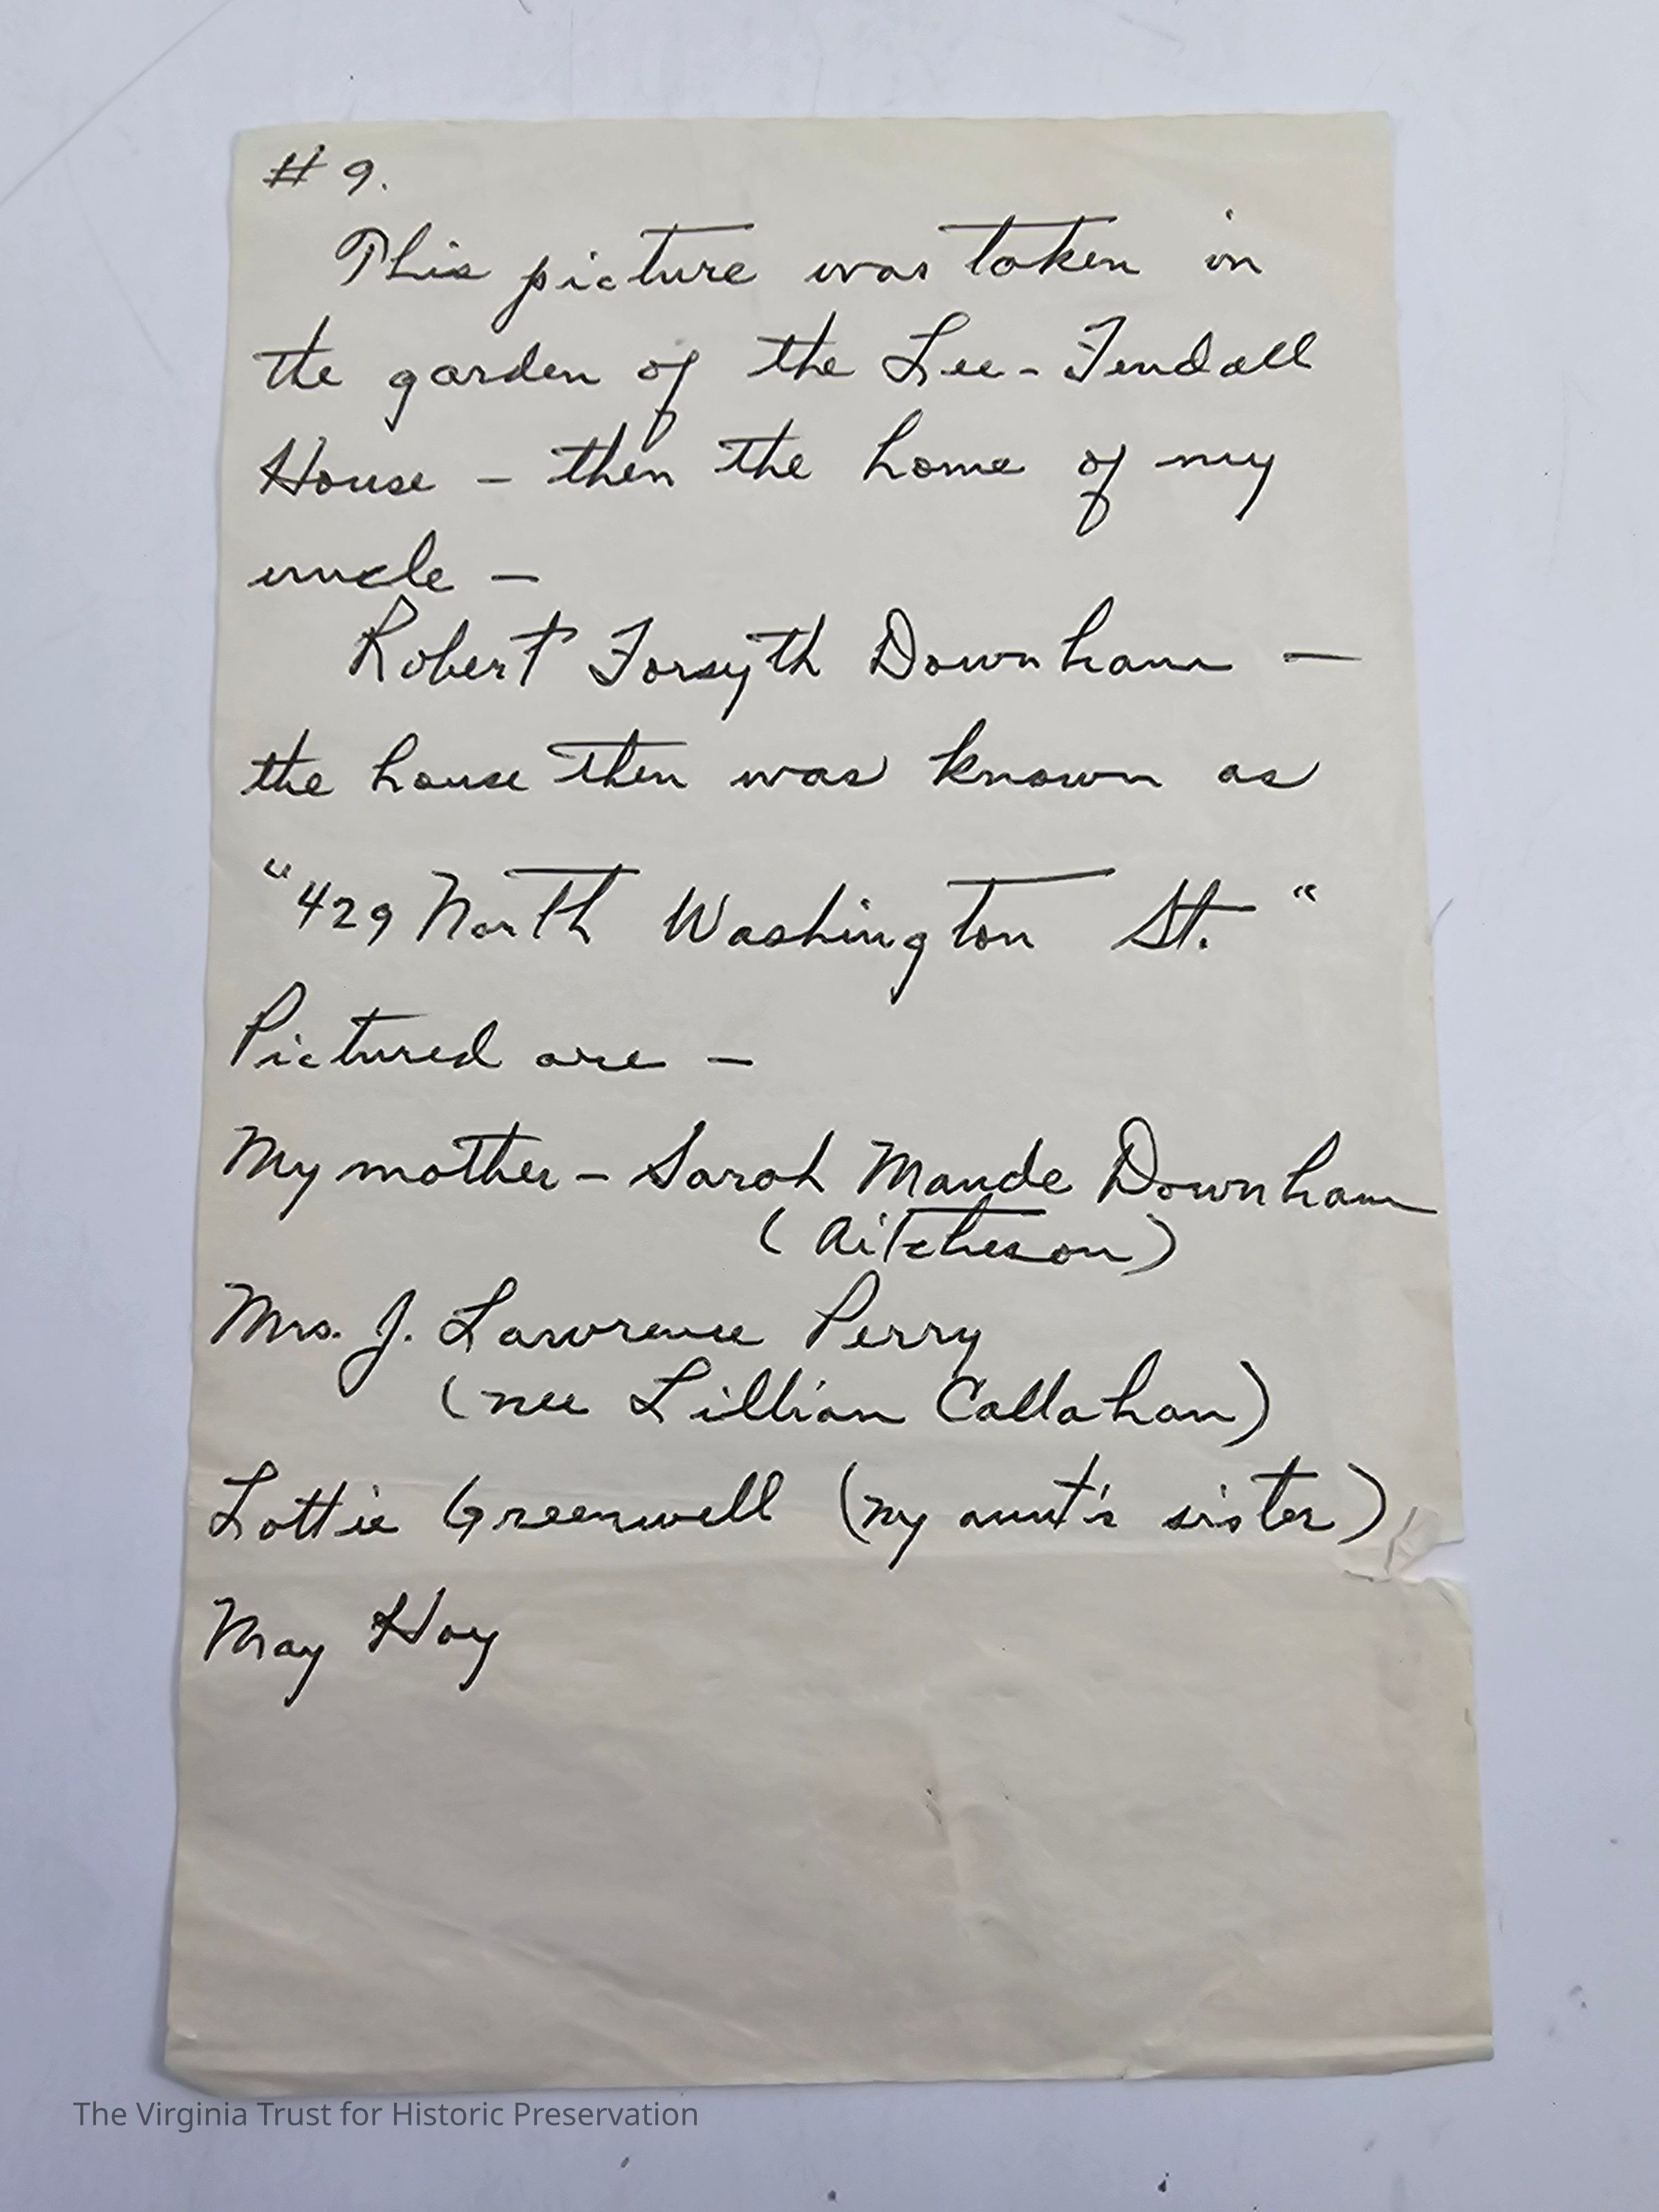 # 9.
This picture was taken in
the garden of the Lee-Fendall
House – then the home of my
uncle –
Robert Forsyth Downham –
the house then was known as
"429 North Washington St."
Pictured are –
My mother – Sarah Maude Downham
(Aitcheson)
Mrs. J. Lawrence Perry
(nee Lillian Callahan)
Lottie Greenwell (my aunt's sister)
May Hoy
The Virginia Trust for Historic Preservation